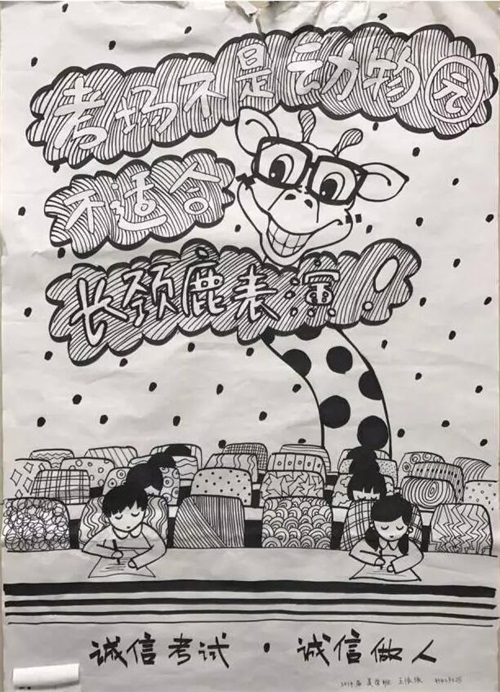 考场不是动物园
不适合
长颈鹿表演！
诚信考试·诚信做人